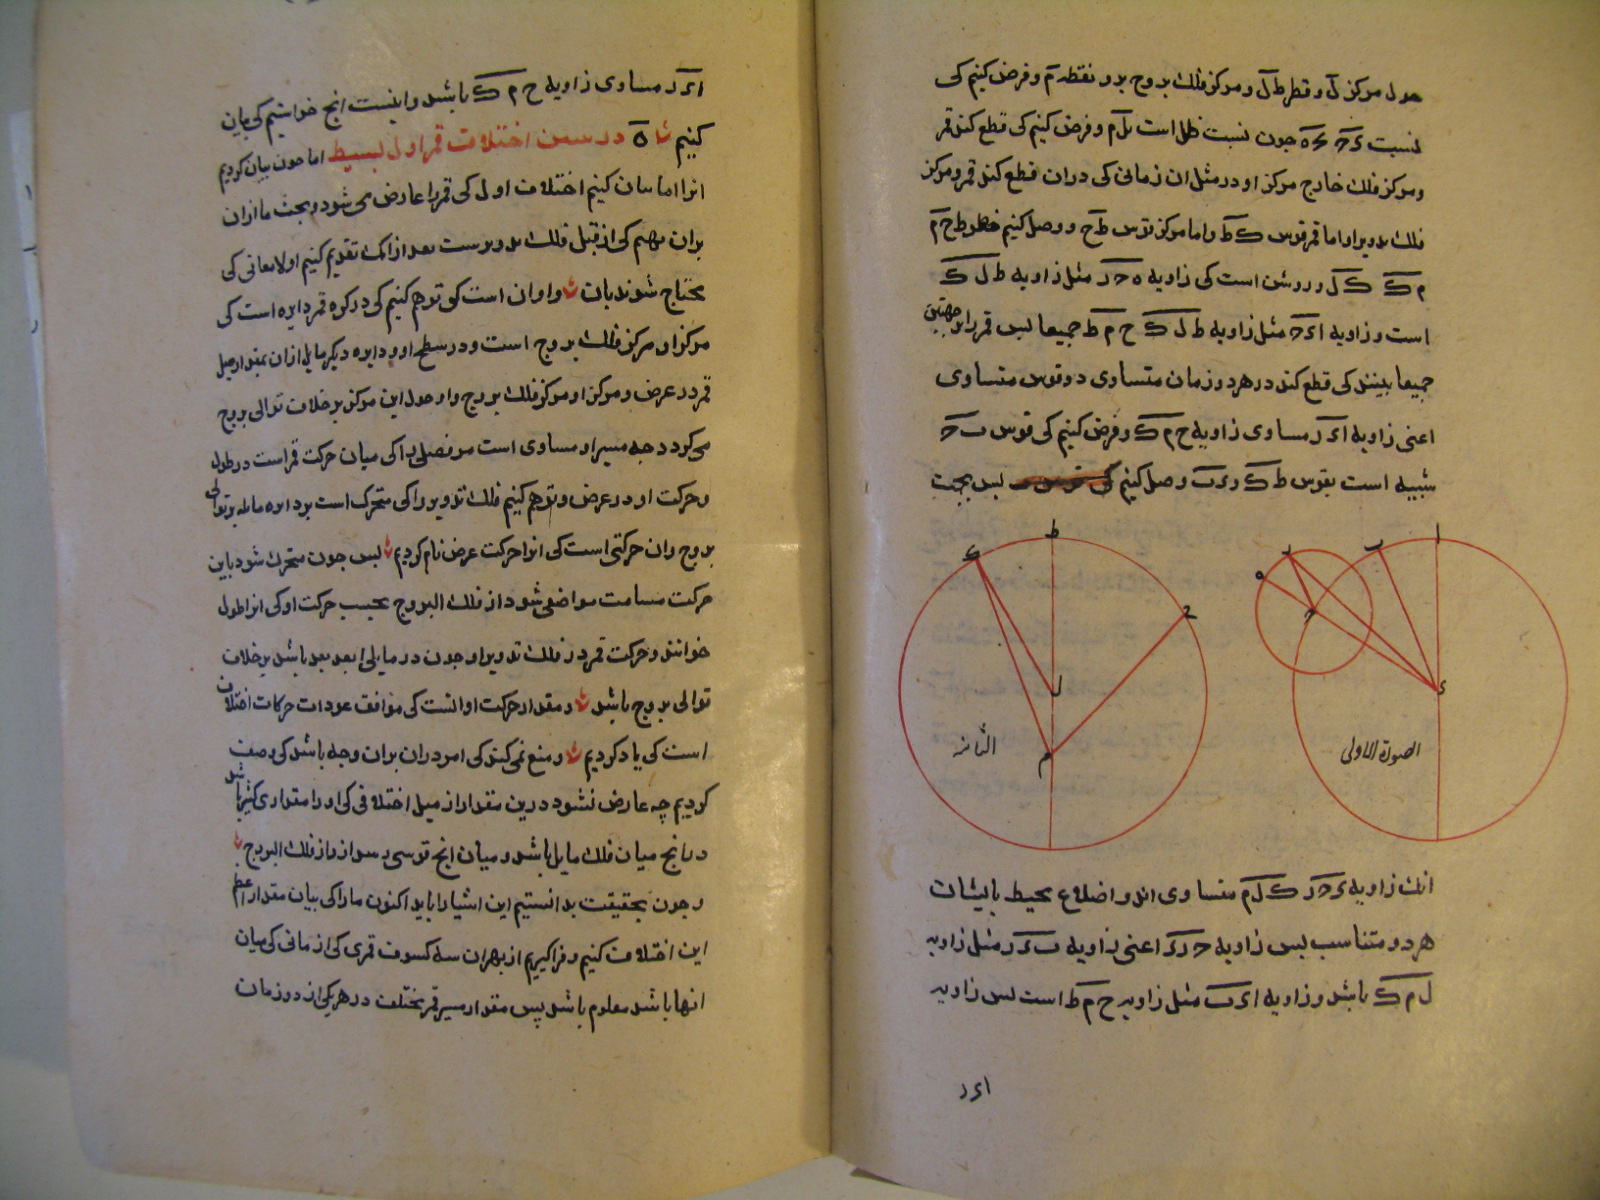 حول مرکز ل و قطر ط ل و مرکز فلک بروج بر و نقطه م و فرض کنیم کی
نسبت جون نسبت ظل است بل م و فرض کنیم کی قطع کند قمر
و مرکز فلک خارج مرکز او در مثل ان زمانی کی دران قطع کند قمر و مرکز
فلک تدویر او اما قمر قوس ک ط و اما مرکز قوس ط ح و وصل کنیم خطوط ح م
م ک ک ل و روشن است کی زاویه ه ح ر مثل زاویه ط ل ک
است و زاویه ا ی ح مثل زاویه ط ل ک ح م ط جمیعا پس قمر را بر جهتین
جمیعا بینند کی قطع کند در هر دو زمان متساوی دو قوس متساوی
اعنی زاویه ا ی ر مساوی زاویه ح م ک و فرض کنیم کی قوس ب ح
شبیه است بقوس ط ک و ی ب وصل کنیم پس بجهت
ا
ب
ر
ه
ح
ی
الصورة الاولی
ط
ک
ح
ل
م
الثانیه
انک زاویه ی ح ر ک ل م متساوی اند و اضلاع محیط بایشان
هر دو متناسب پس زاویه ح ر ی اعنی زاویه ب ی ر مثل زاویه
ل م ک باشد و زاویه ا ی ب مثل زاویه ح م ط است پس زاویه
ا ی ر
ا ی ر مساوی زاویه ح م ک باشد و اینست انج خواستیم کی بیان
کنیم ه در اختلاف قمر اول بسیط اما جون بیان کردیم
انرا اما بیان کنیم اختلاف اول کی قمر را عارض می شود و بحث ما ازان
بران نهیم کی از قبل فلک تدویرست بعد از انک تقدیم کنیم اولا معانی کی
محتاج شوند بان و او ان است کی توهم کنیم کی در کره قمر دایره است کی
مرکز او مرکز فلک بروج است و در سطح او و دایره دیگر مایل ازان بمقدار میل
قمر در عرض و مرکز او مرکز فلک بروج و او حول این مرکز بر خلاف توالی بروج
می کردد جه مسیر او مساوی است مر فضلی را کی میان حرکت قمر است در طول
و حرکت او در عرض و توهم کنیم فلک تدویر را کی متحرک است بر دایره مایله بر توالی
بروج ران حرکتی است کی انرا حرکت عرض نام کردیم پس جون متحرک شود باین
حرکت مسامت مواضعی شود از فلک البروج بحسب حرکت او کی انرا طول
خوانند و حرکت قمر در فلک تدویر او جون در مایلی ابعد بعد باشد بر خلاف
توالی بروج باشد و مقدار حرکت او انست کی موافق عودات حرکات اختلاف
است کی یاد کردیم و منع نمی کند کی امر دران بران وجه باشد کی وصف
کردیم چه عارض نشود درین مقدار از میل اختلافی کی او را مقداری کثیر باشد
در انج میان فلک مایل باشد و میان انج قوسی رسد ازو از فلک البروج
و جون بحقیقت بدانستیم این اشیا را باید اکنون ما را کی بیان مقدار اعظم
این اختلاف کنیم و فراکیریم از بهر ان سه کسوف قمری کی از مانی کی میان
انها باشد معلوم باشد پس مقدار مسیر قمر مختلف در هر یکی از دو زمان